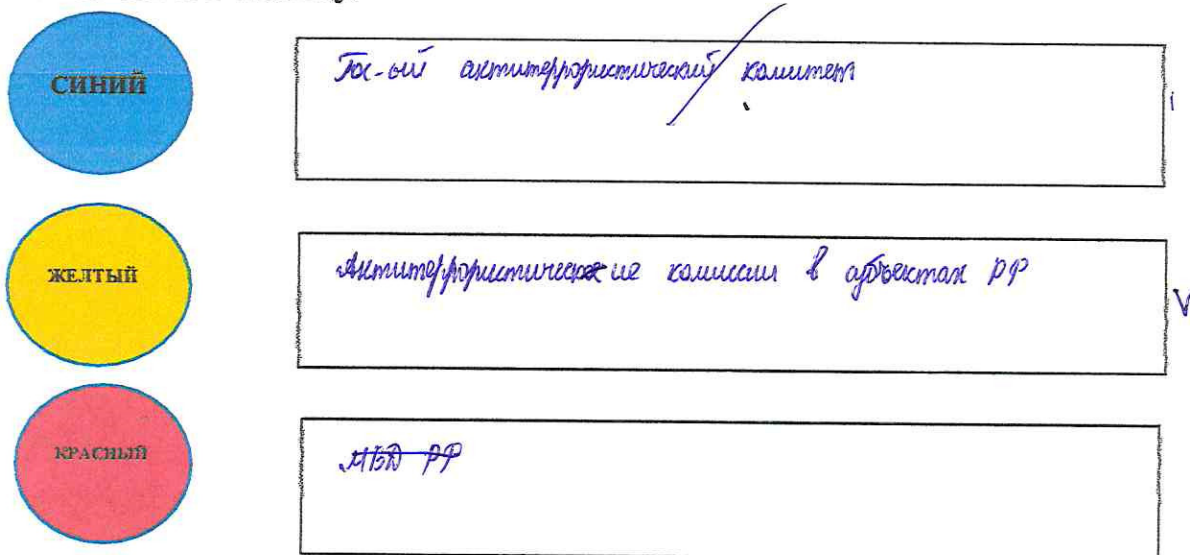 СИНИЙ
Гос-ый антитеррористический комитет
ЖЕЛТЫЙ
Антитеррористические комиссии в субъектах РФ
V
КРАСНЫЙ
МВД РФ